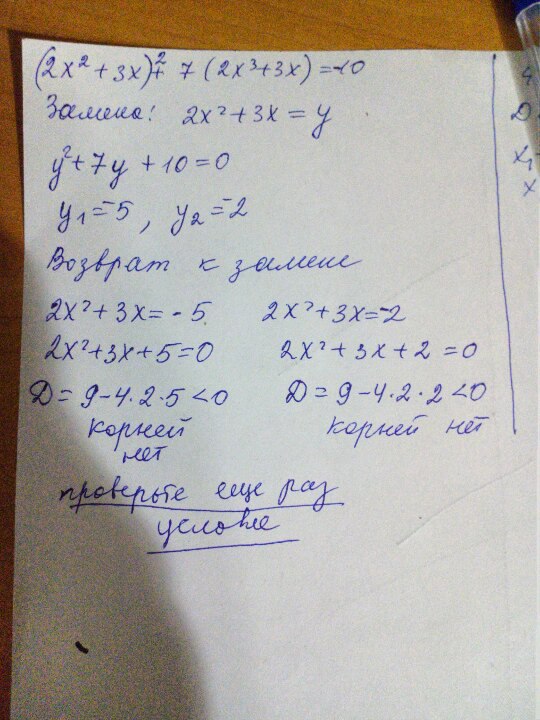 (2x² + 3x)² + 7 (2x³+3x) = -10
Замена: 2x² + 3x = y
y² + 7y + 10 = 0
y₁ = -5, y₂ = -2
Возврат к замене
2x² + 3x = -5 2x² + 3x = -2
2x² + 3x + 5 = 0 2x² + 3x + 2 = 0
D = 9 - 4·2·5 < 0 D = 9 - 4·2·2 < 0
корней корней нет
нет
проверьте еще раз
условие
D
x₁
x